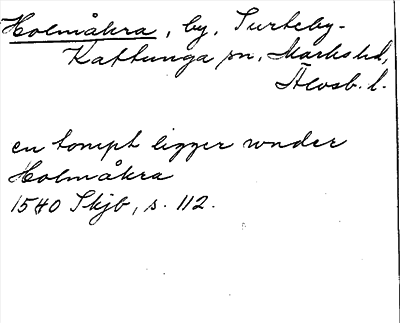 Holmåkra, by, Surteby-
Kattunga sn, Marks hd,
Älvsb. l.
en tompt ligger wnder
Holmåkra
1540 Skjb, s. 112.